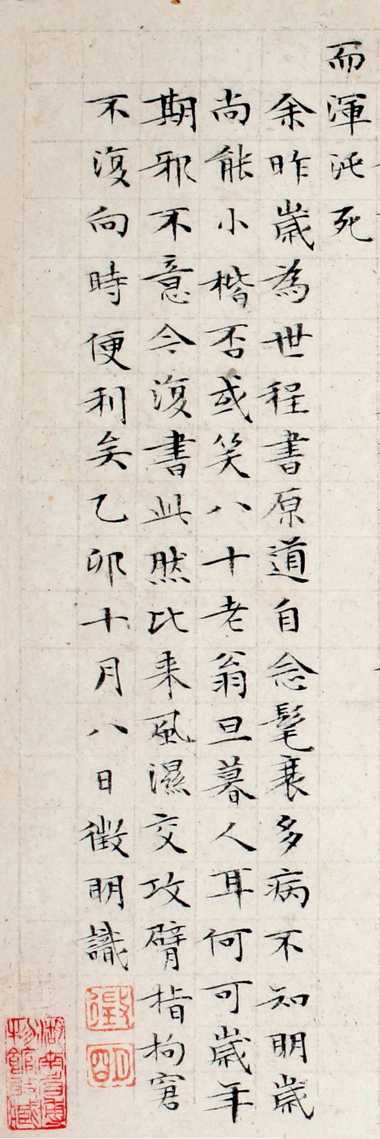 而渾沌死
余昨歲為世程書原道自念髦衰多病不知明歲
尚能小楷否或笑八十老翁旦暮人耳何可歲年
期邪不意今復書此然比来風濕交攻臂指拘窘
不復向時便利矣乙卯十月八日徵明識
徵
明
湖南省博
物館藏